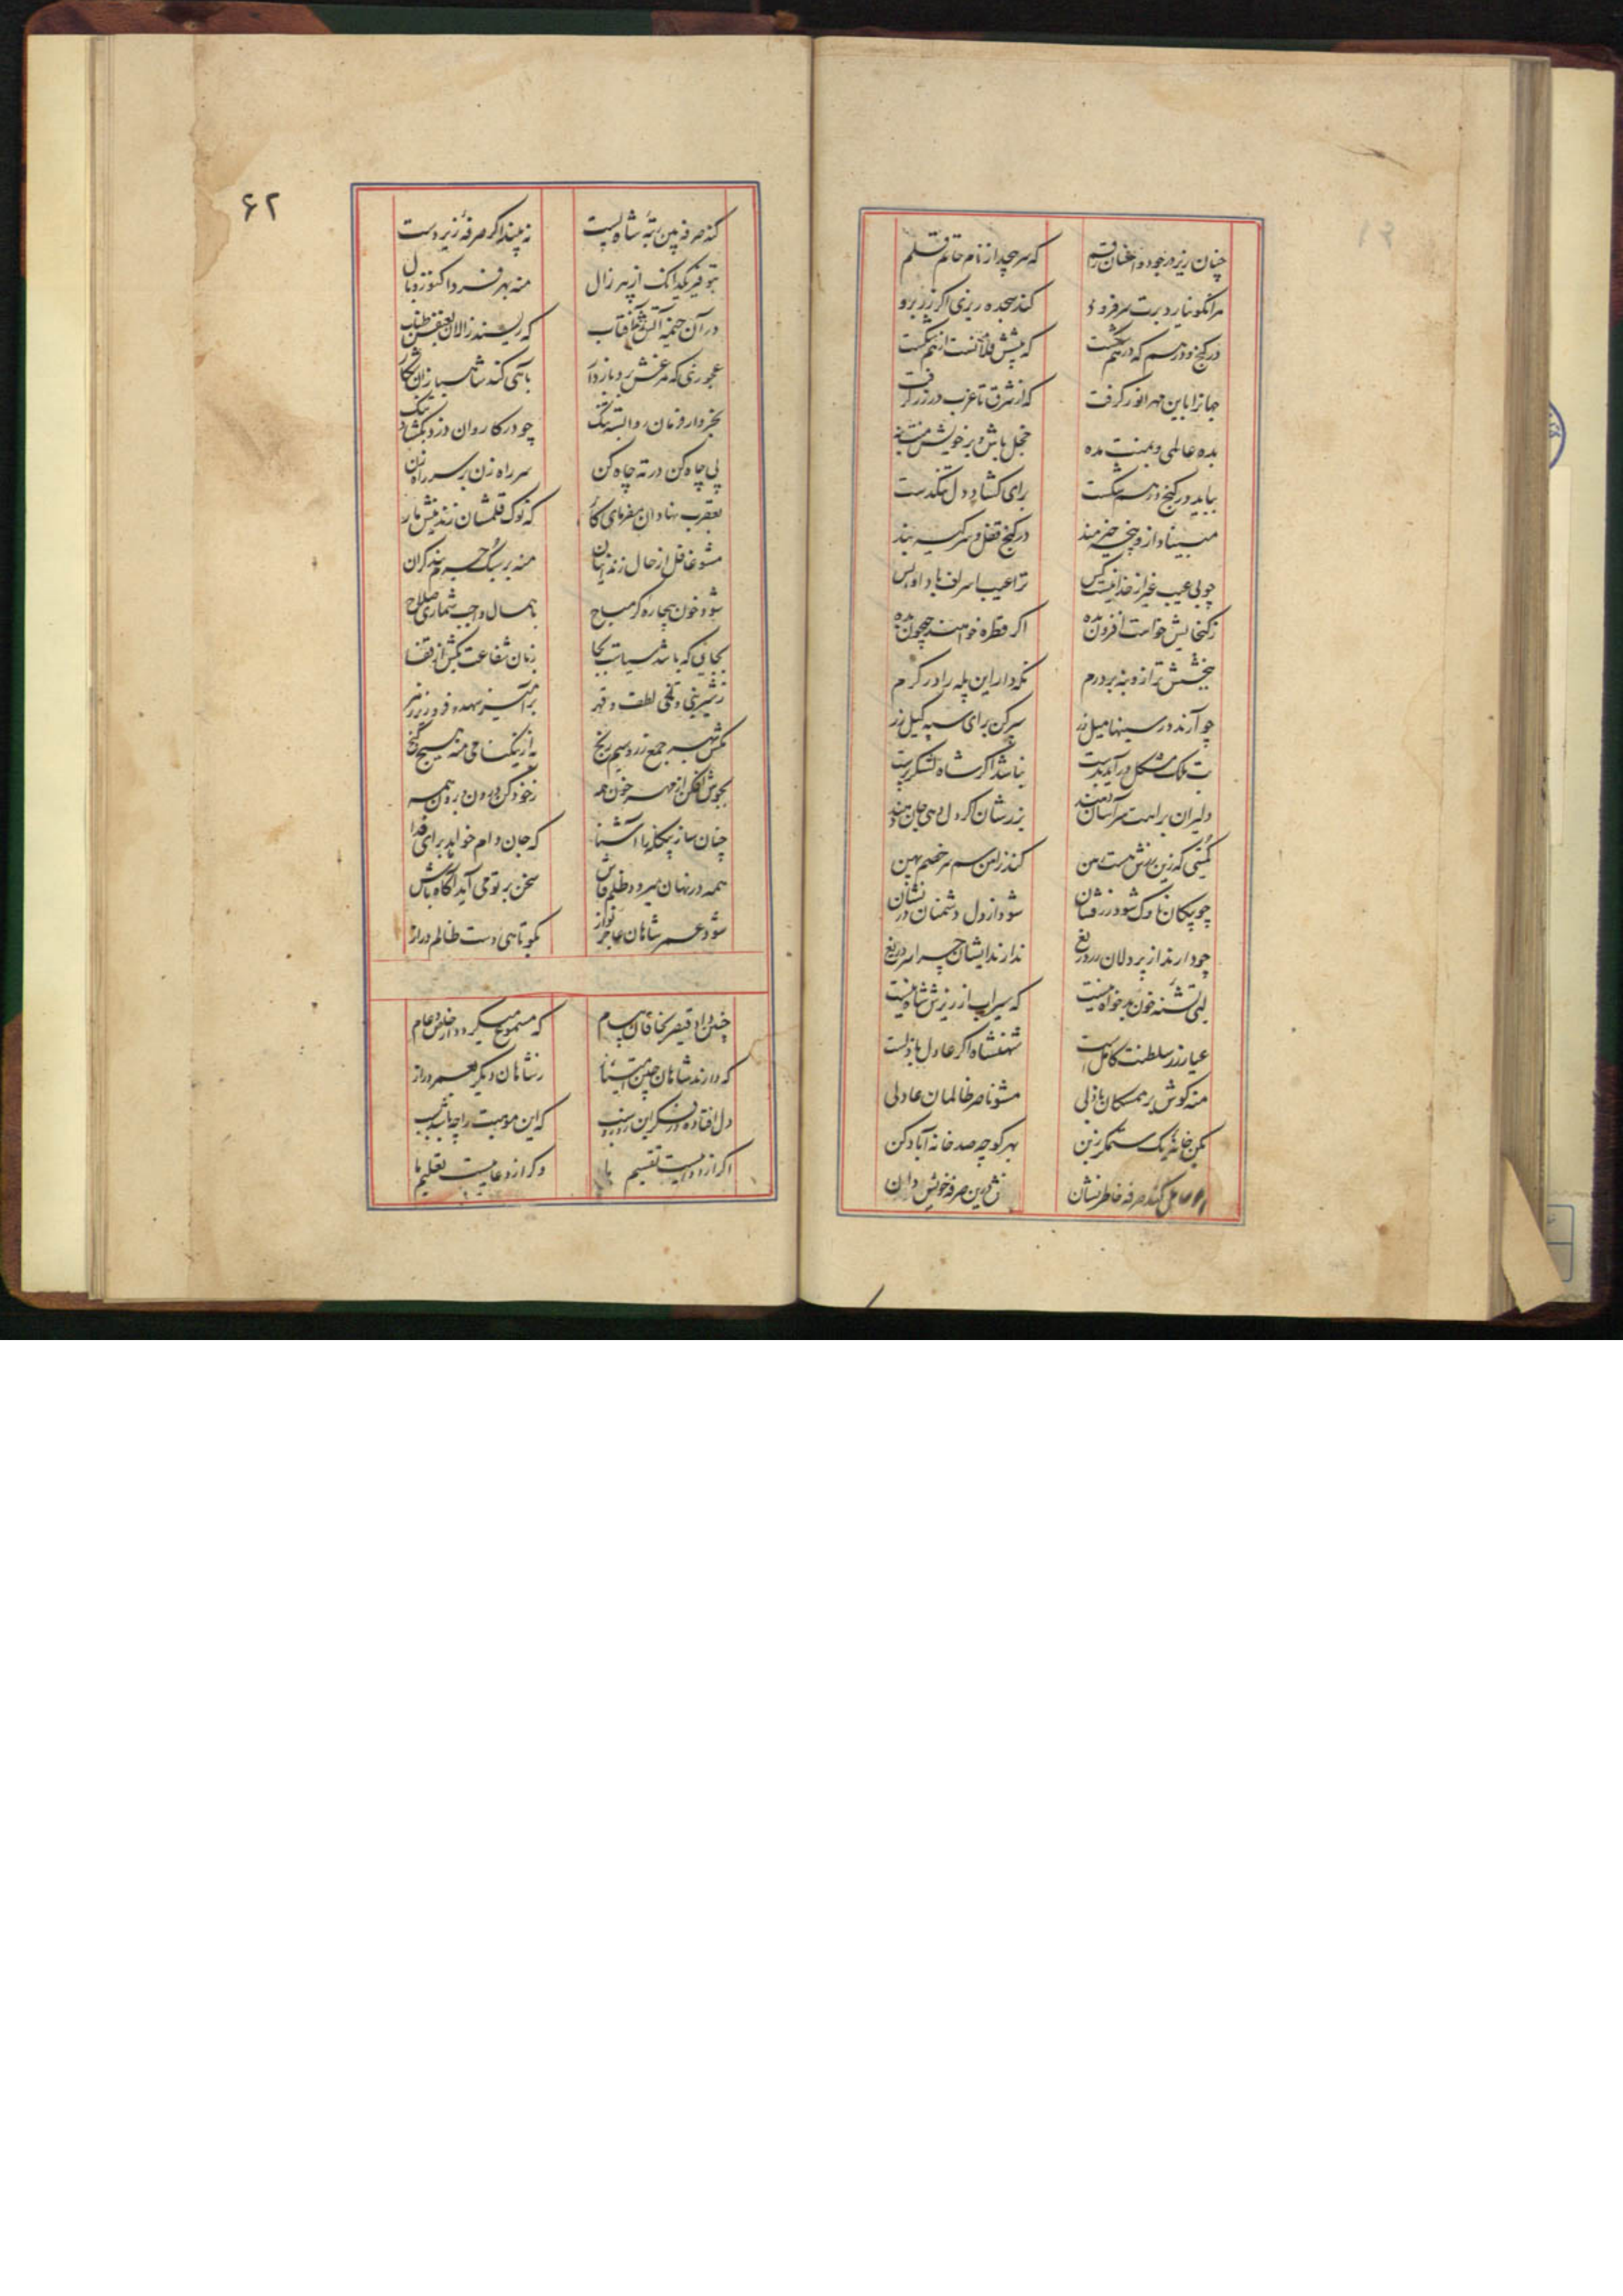 چنان ریز در جود و احسان رقم
که سر پیچد از نام حاتم قلم
هر آنکو نیارد برت سر فرود
کند سجده ریزی اگر زر برو
در گنج و درهم که درهم شکست
که پیش غلامت از هم شکست
جهانرا باین مهر انور گرفت
که از شرق تا غرب در زر گرفت
بده عالمی و بمنت مده
خجل باش و بر خویش منت بنه
بباید در گنج و درهم شکست
برای گشاد دل تنگدست
مبیناد از و پنجه خیرمند
در گنج قفل و سر کیسه بند
چو بی عیب غیر از خدا نیست کس
ترا عیب اسراف باد او بس
ز گنجایش خواست افزون بده
اگر قطره خواهند جیحون بده
ببخشش ترازو بنه بر درم
نگه دار این پله را در کرم
چو آرند در سینها میل زر
سپر کن برای سپه کیل زر
بت ملک مشکل در آید بدست
نباشد اگر شاه لشکر پرست
دلیران برایت سر آسان دهند
بزرشان اگر دل دهی جان دهند
کمیتی که زین زرش هست من
کند ز آهن سم سر خصم پهن
چو پیکان ناوک شود زر فشان
شود از دل دشمنان در نشان
چو دارند از پر دلان زر دریغ
ندارند ایشان چرا سر دریغ
لبی تشنه خون بدخواه نیست
که سیراب از ریزش شاه نیست
عیار زر سلطنت کامل است
شهنشاه اگر عادل باذلست
منه گوش بر همسکان باذلی
مشو ناصر ظالمان عادلی
بکن خانه یک ستمگر ز بن
بهر کوچه صد خانه آباد کن
کند صرفه خاطر نشان
درین صرفه خویش دان
۶۲
کند صرفه بین رتبه شاه پست
نه بیند اگر صرفه زیر دست
بتوفیر یکدانک از پیر زال
منه بهر فردا کنوز وبال
در آن خیمه آتش فکن آفتاب
که ریسند زالان بعنفش طناب
عجوزی که مرغش برد باز دار
بآهی کند شاهبازان شکار
بخروار فرمان روا بسته تنگ
چو در کاروان دزد بگشاد تنگ
پی چاه کن در ته چاه کن
سر راه زن بر سر راه زن
بعقرب نهادان مفرمای کار
که نوک قلمشان زند نیش مار
مشو غافل از حال زندانیان
منه بر سبک جرم بند گران
شود خون بیچاره گر مباح
باهمال واجب شماری صلاح
بجایی که باشد سیاست بجا
زبان شفاعت بکش از قفا
ز شیرینی و تلخی لطف و قهر
مکش بهر جمع زر و سیم رنج
به از نیکنامی منه هیچ گنج
بجوش افکن از مهر خون همه
ز خود کن درون و برون همه
چنان ساز بیگانه را آشنا
که جان وام خواهد برای فدا
همه در نهان میرود ظلم فاش
سخن بر تو می آید آگاه باش
شود عمر شاهان عاجز نواز
بکوتاهی دست ظالم دراز
چنین داد قیصر بخاقان پیام
که مسموع میگردد از خاص و عام
که دارند شاهان چین امتیاز
ز شاهان دیگر بعمر دراز
دل افتاده در فکر این روز و شب
که این موهبت را چه باشد سبب
اگر از دواییست تقسیم ما
وگر از دعاییست تعلیم ما